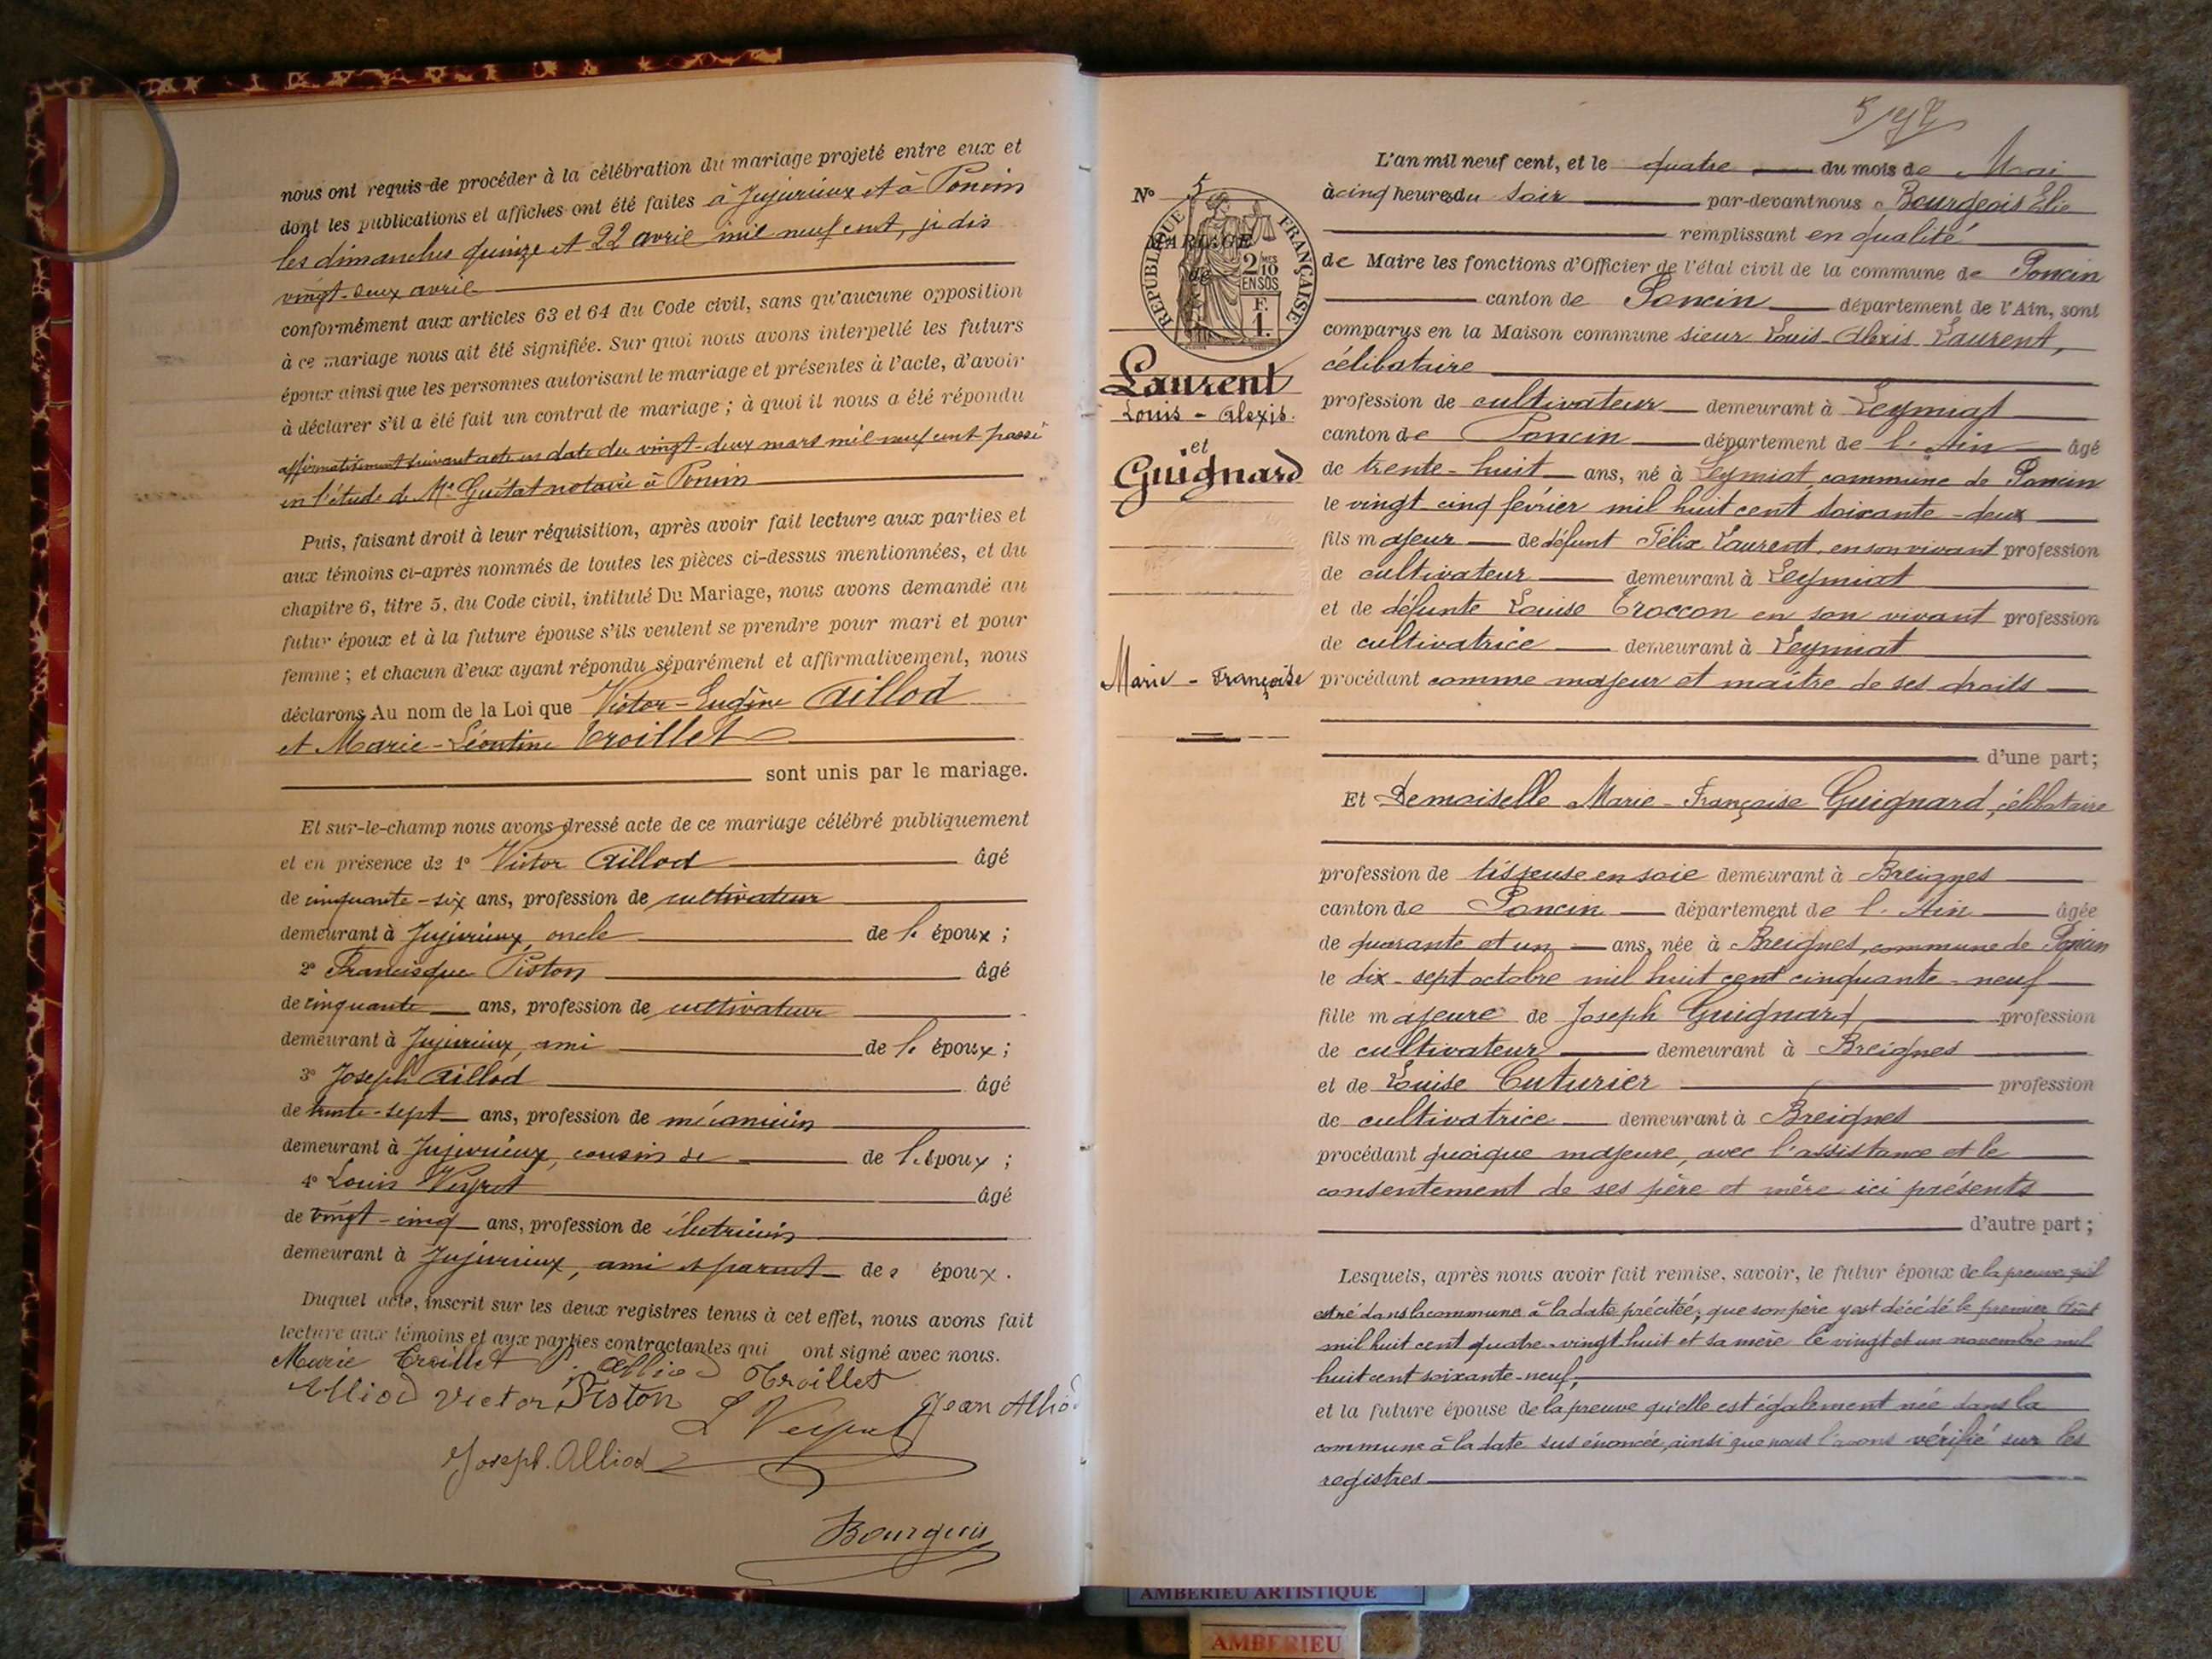 nous ont requis de procéder à la célébration du mariage projeté entre eux et
dont les publications et affiches ont été faites à Jujurieux et à Poncin
les dimanches quinze et 22 avril mil neuf cent, je dis
vingt-deux avril
conformément aux articles 63 et 64 du Code civil, sans qu'aucune opposition
à ce mariage nous ait été signifiée. Sur quoi nous avons interpellé les futurs
époux ainsi que les personnes autorisant le mariage et présentes à l'acte, d'avoir
à déclarer s'il a été fait un contrat de mariage ; à quoi il nous a été répondu
affirmativement suivant acte en date du vingt-deux mars mil neuf cent passé
en l'étude de Me Guitat notaire à Poncin
Puis, faisant droit à leur réquisition, après avoir fait lecture aux parties et
aux témoins ci-après nommés de toutes les pièces ci-dessus mentionnées, et du
chapitre 6, titre 5, du Code civil, intitulé Du Mariage, nous avons demandé au
futur époux et à la future épouse s'ils veulent se prendre pour mari et pour
femme ; et chacun d'eux ayant répondu séparément et affirmativement, nous
déclarons Au nom de la Loi que Victor-Eugène Alliod
et Marie-Léontine Troillet
sont unis par le mariage.
Et sur-le-champ nous avons dressé acte de ce mariage célébré publiquement
et en présence de 1° Victor Alliod âgé
de cinquante-six ans, profession de cultivateur
demeurant à Jujurieux, oncle de l' époux ;
2° Francisque Piston âgé
de cinquante ans, profession de cultivateur
demeurant à Jujurieux, ami de l' époux ;
3° Joseph Alliod âgé
de trente-sept ans, profession de mécanicien
demeurant à Jujurieux, cousin de de l'époux ;
4° Louis Veyret âgé
de vingt-cinq ans, profession de électricien
demeurant à Jujurieux, ami et parent des époux.
Duquel acte, inscrit sur les deux registres tenus à cet effet, nous avons fait
lecture aux témoins et aux parties contractantes qui ont signé avec nous.
Marie Troillet Alliod Troillet
Alliod Victor Piston L Veyret Jean Alliod
Joseph. Alliod
Bourgeois
5
N° 5
MARIAGE
de
RÉPUBLIQUE FRANÇAISE
2/10 MES
EN SUS
F.
1.
Laurent
Louis - Alexis.
et
Guignard
Marie - Françoise
L'an mil neuf cent, et le quatre du mois de Mai
à cinq heures du soir par-devant nous Bourgeois Elie
remplissant en qualité
de Maire les fonctions d'Officier de l'état civil de la commune de Poncin
canton de Poncin département de l'Ain, sont
comparus en la Maison commune sieur Louis-Alexis Laurent,
célibataire
profession de cultivateur demeurant à Leymiat
canton de Poncin département de l'Ain âgé
de trente-huit ans, né à Leymiat commune de Poncin
le vingt cinq février mil huit cent soixante-deux
fils majeur de défunt Félix Laurent, en son vivant profession
de cultivateur demeurant à Leymiat
et de défunte Louise Troccon en son vivant profession
de cultivatrice demeurant à Leymiat
procédant comme majeur et maître de ses droits
d'une part ;
Et Demoiselle Marie-Françoise Guignard, célibataire
profession de tisseuse en soie demeurant à Breignes
canton de Poncin département de l'Ain âgée
de quarante et un ans, née à Breignes, commune de Poncin
le dix-sept octobre mil huit cent cinquante-neuf
fille majeure de Joseph Guignard, profession
de cultivateur demeurant à Breignes
et de Louise Cuturier profession
de cultivatrice demeurant à Breignes
procédant quoique majeure, avec l'assistance et le
consentement de ses père et mère ici présents
d'autre part ;
Lesquels, après nous avoir fait remise, savoir, le futur époux de la preuve qu'il
est né dans la commune à la date précitée, que son père y est décédé le premier Août
mil huit cent quatre-vingt-huit et sa mère le vingt et un novembre mil
huit cent soixante-neuf;
et la future épouse de la preuve qu'elle est également née dans la
commune à la date sus énoncée, ainsi que nous l'avons vérifié sur les
registres
AMBERIEU ARTISTIQUE
AMBERIEU